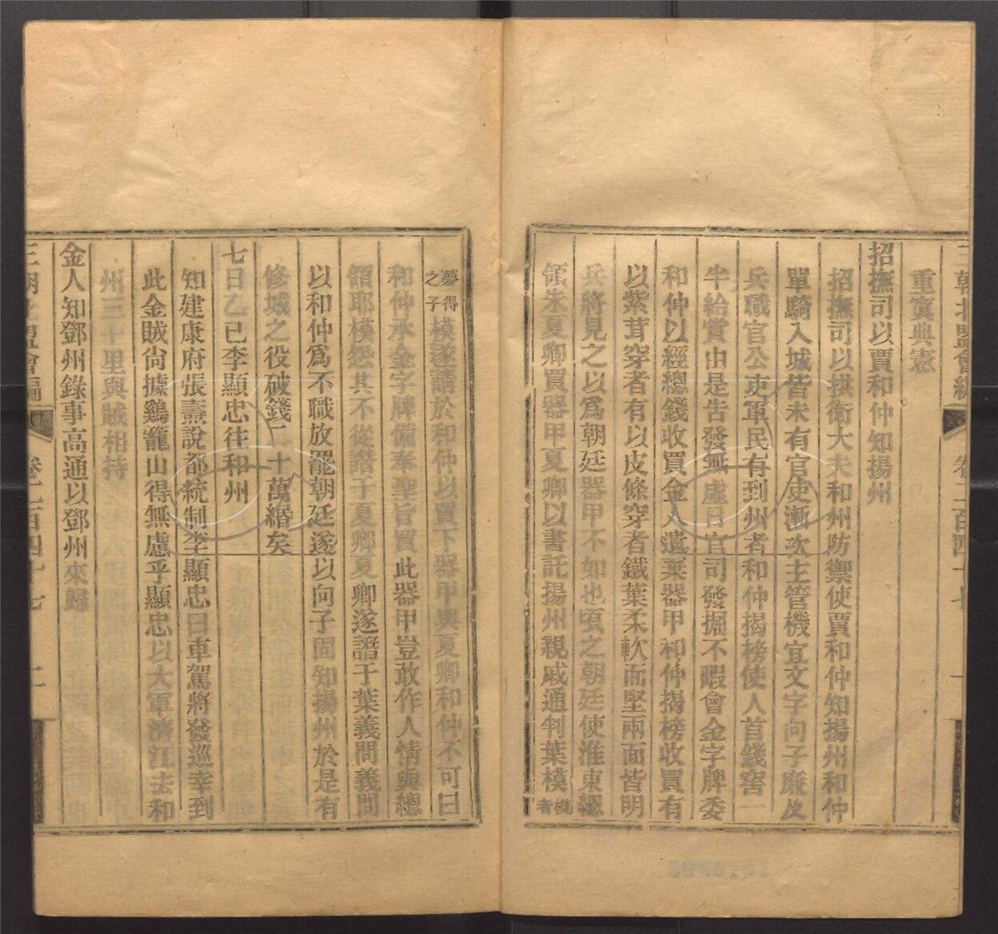 三朝北盟會編
卷二百四十七
重寘典憲
招撫司以賈和仲知揚州
招撫司以拱衛大夫和州防禦使賈和仲知揚州和仲
單騎入城皆未有官吏漸次主管機宜文字向子廉及
兵職官公吏軍民有到州者和仲揭榜使人首錢窖一
半給賞由是告發無虛日官司發掘不暇會金字牌委
和仲以經總錢收買金人遺棄器甲和仲揭榜收買有
以紫茸穿者有以皮條穿者鐵葉柔軟而堅兩面皆明
兵將見之以為朝廷器甲不如也頃之朝廷使淮東總
領朱夏卿買器甲夏卿以書託揚州親戚通判葉模模者
夢得之子模遂謂於和仲以買下器甲與夏卿和仲不可曰
和仲承金字牌備奉聖旨買此器甲豈敢作人情與總
領耶模怨其不從譖于夏卿夏卿遂譖于葉義問義問
以和仲爲不職放罷朝廷遂以向子固知揚州於是有
修城之役破錢二十萬緡矣
七日乙巳李顯忠往和州
知建康府張燾說都統制李顯忠曰車駕將發巡幸到
此金賊尙據鷄籠山得無慮乎顯忠以大軍濟江去和
州三十里與賊相持
金人知鄧州錄事高通以鄧州來歸
三朝北盟會編
卷二百四十七